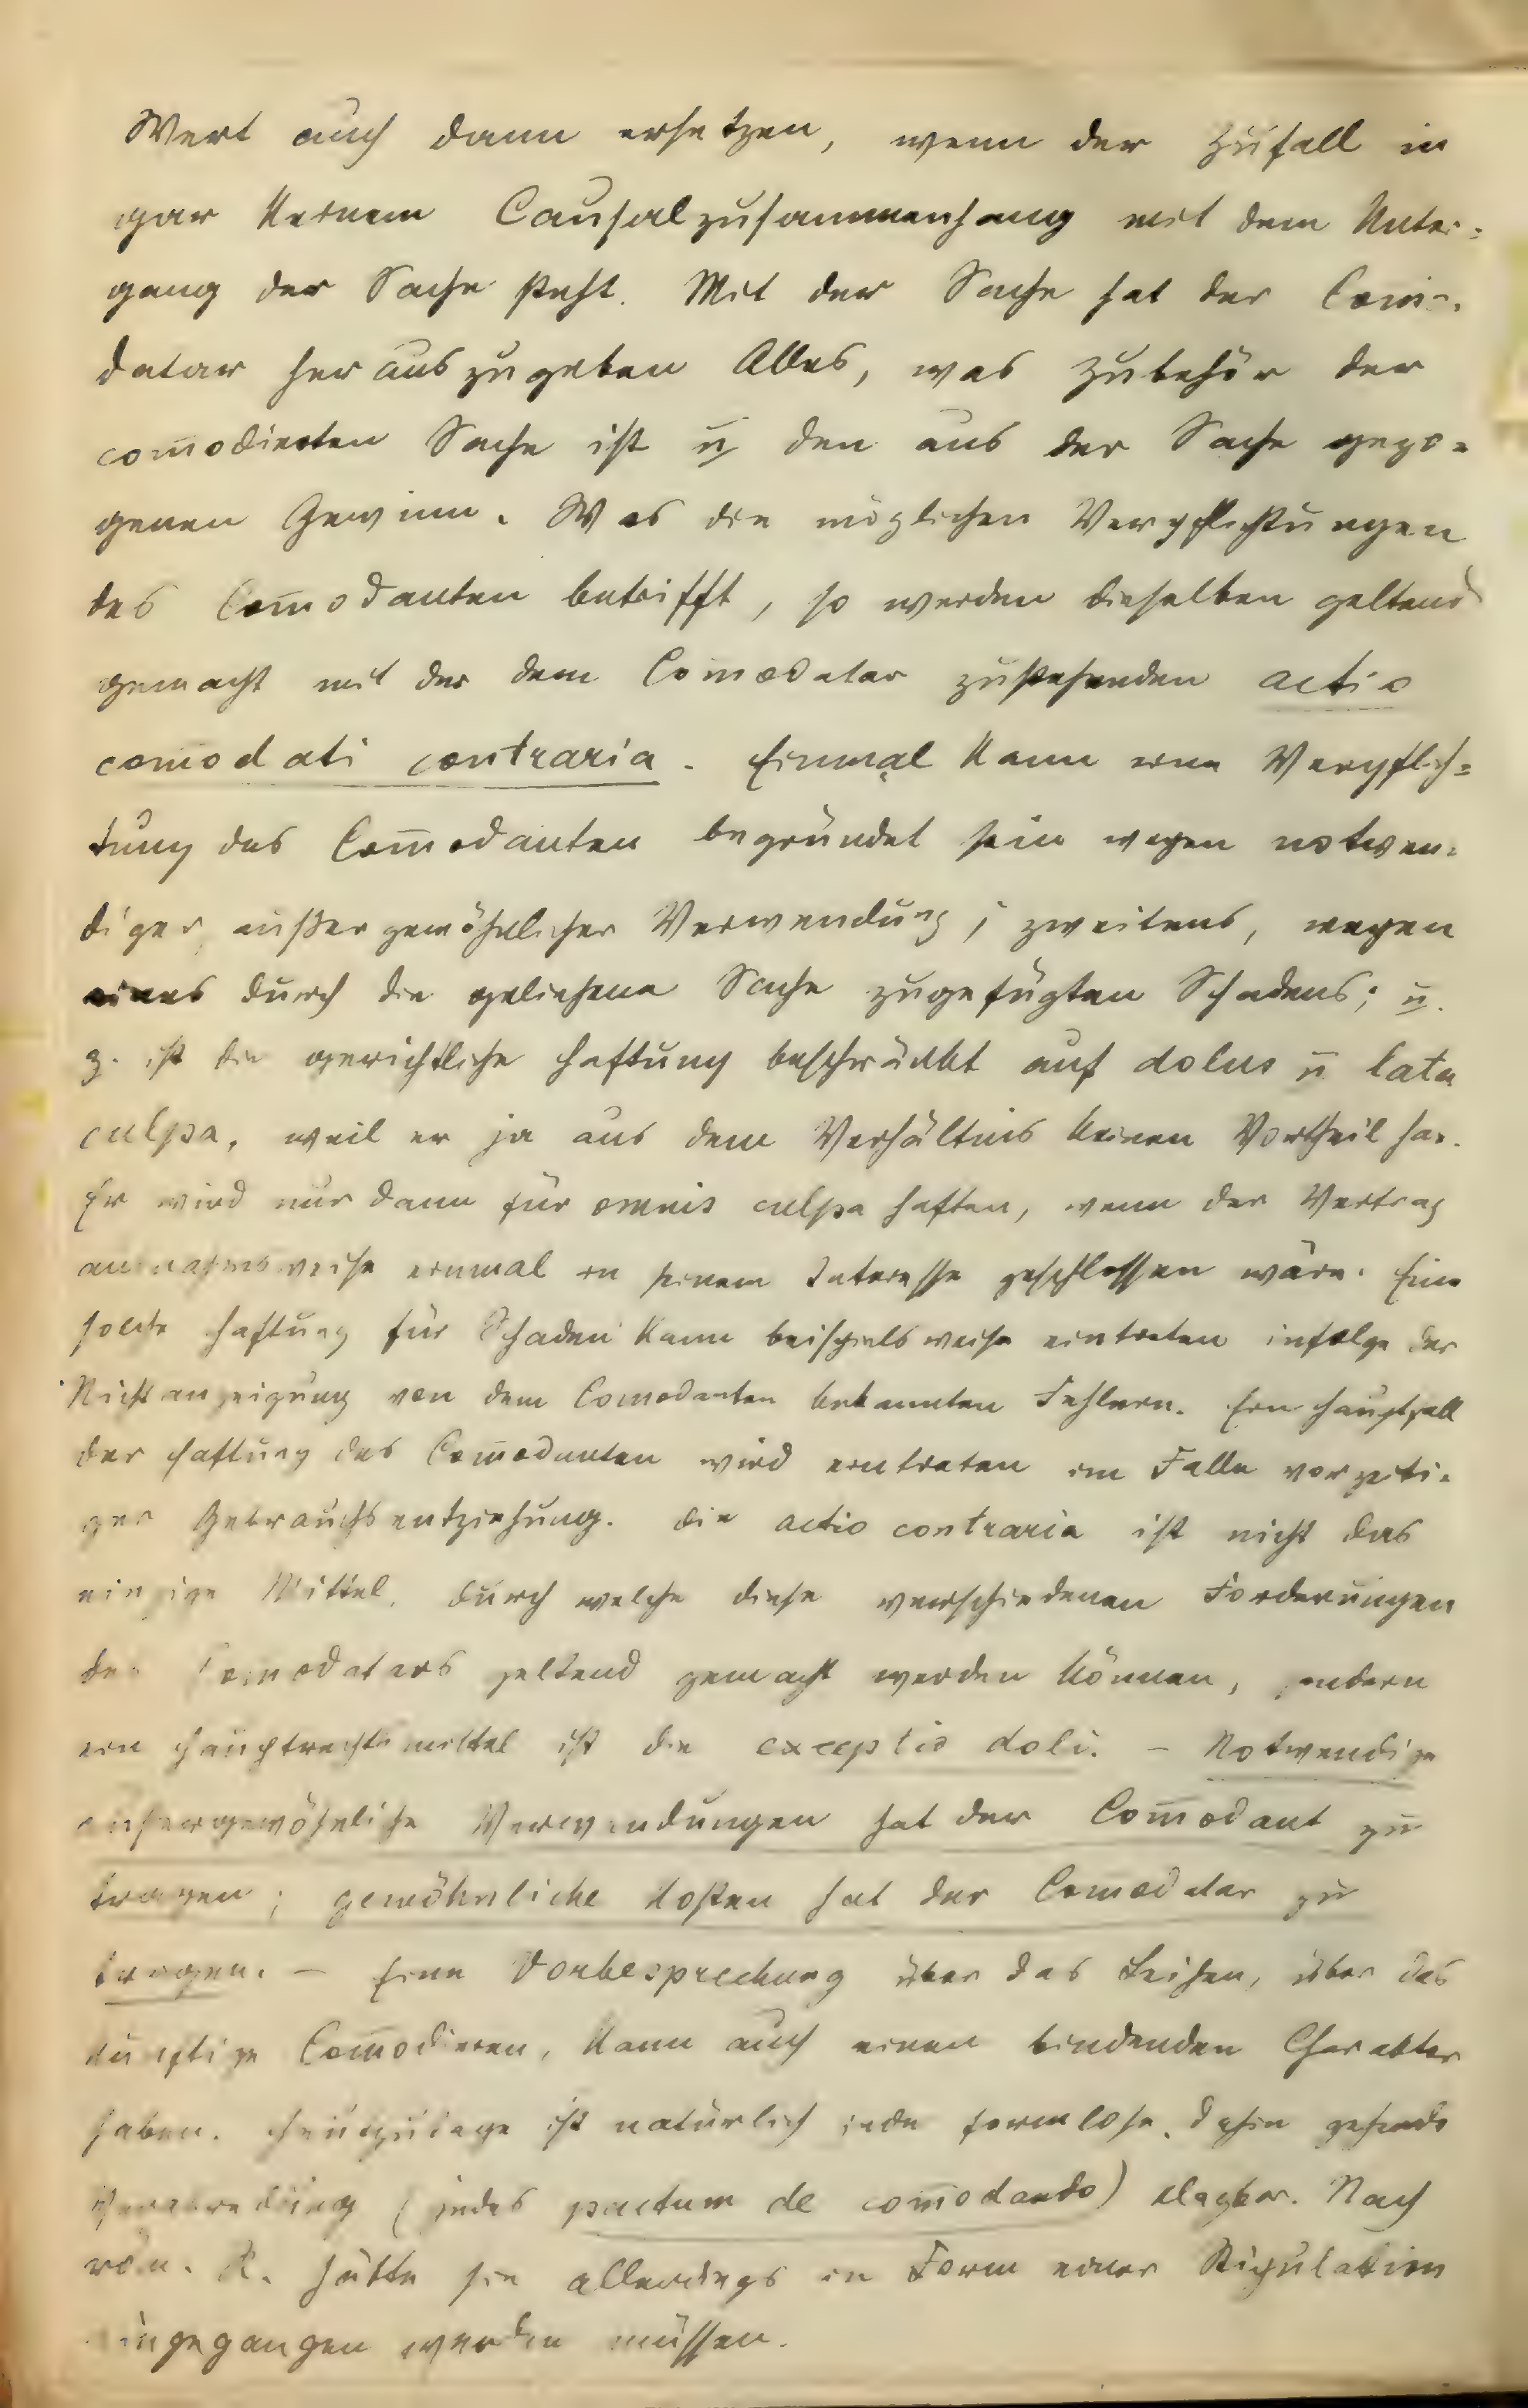 Wert auch dann ersetzen, wenn der Zufall in
gar keinem Causalzusammenhang mit dem Unter-
gang der Sache steht. Mit der Sache hat der Com̄o-
datar herauszugeben Alles, was Zubehör der
com̄odierten Sache ist u den aus der Sache gezo-
genen Gewinn. Was die möglichen Verpflichtungen
des Com̄odanten betrifft, so werden dieselben geltend
gemacht mit der dem Com̄odatar zustehenden actio
com̄odati contraria. Einmal kann eine Verpflich-
tung des Com̄odanten begründet sein wegen notwen-
diger, außergewöhnlicher Verwendung; zweitens, wegen
eines durch die geliehene Sache zugefügten Schadens; u.
z. ist die gerichtliche Haftung beschränkt auf dolus u lata
culpa, weil er ja aus dem Verhältnis keinen Vortheil hat.
Er wird nur dann für omnis culpa haften, wenn der Vertrag
ausnahmsweise einmal in seinem Interesse geschlossen wäre. Eine
solche Haftung für Schaden kann beispielsweise eintreten infolge der
Nichtanzeigung von dem Comodanten bekannten Fehlern. Ein Hauptfall
der Haftung des Com̄odanten wird eintreten im Falle vorzeiti-
ger Gebrauchsentziehung. Die actio contraria ist nicht das
einzige Mittel, durch welche diese verschiedenen Forderungen
des Com̄odatars geltend gemacht werden können, sondern
ein Hauptrechtsmittel ist die exceptio doli. – Notwendige
außergewöhnliche Verwendungen hat der Com̄odant zu
tragen; gewöhnliche Kosten hat der Comodatar zu
tragen. – Eine Vorbesprechung über das Leihen, über das
künftige Com̄odieren, kann auch einen bindenden Charakter
haben. Heutzutage ist natürlich jede formlose, dahin gehende
Verabredung (jedes pactum de com̄odando) klagbar. Nach
röm. R. hätte sie allerdings in Form einer Stipulation
eingegangen werden müssen.